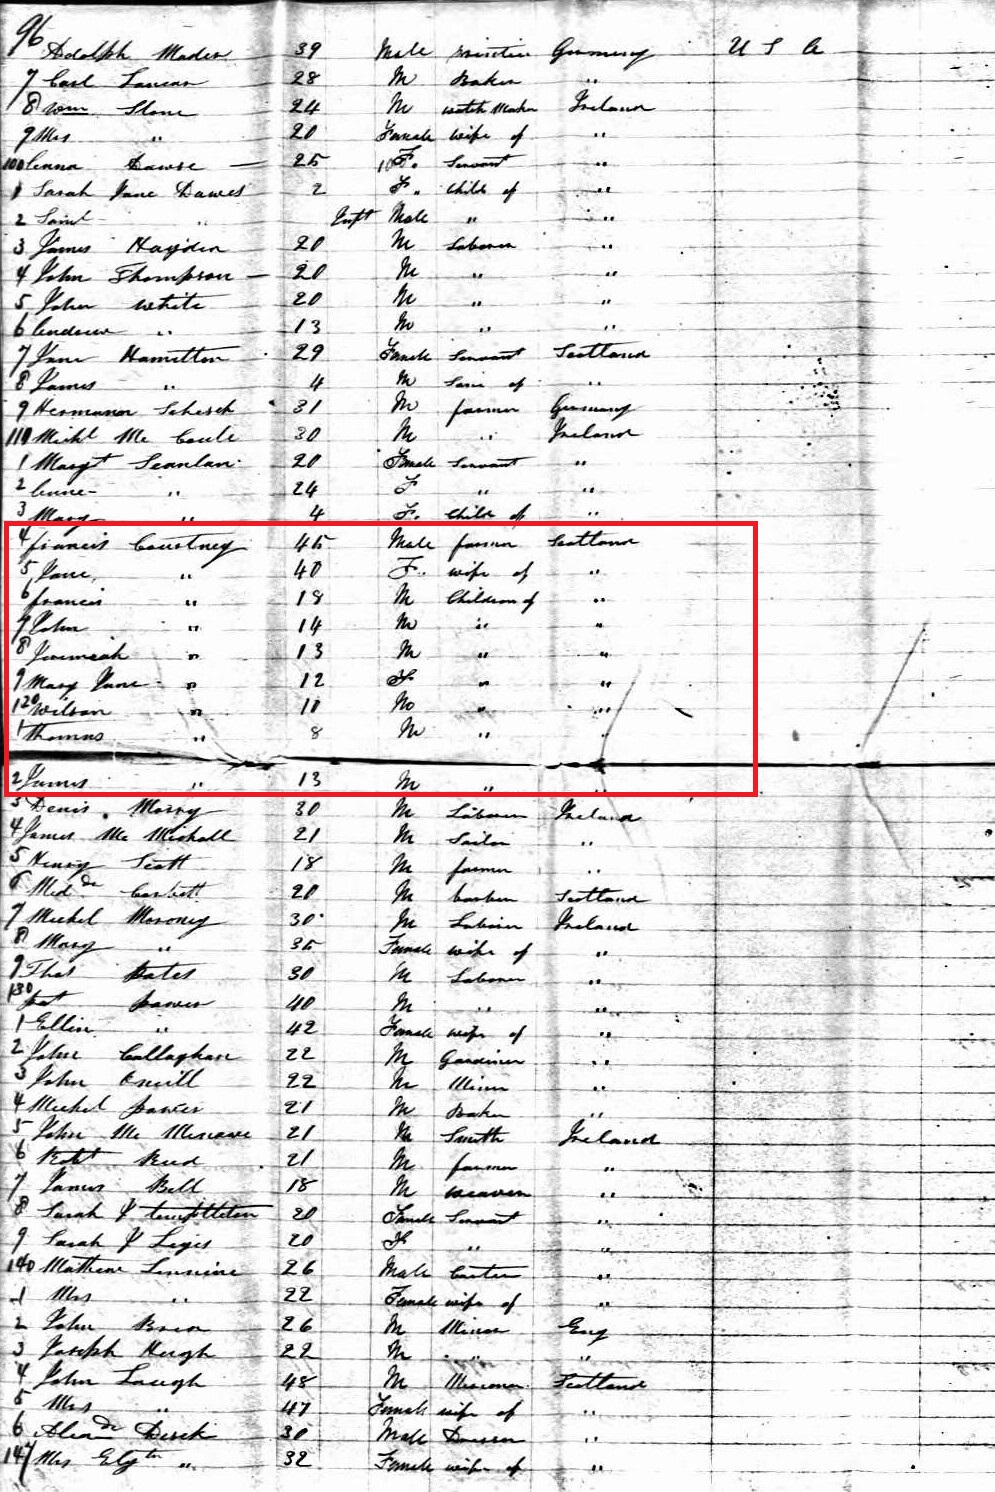 96 Adolph Mader 39 Male Germany U S A
7 Carl 28 M Baker "
8 Wm Stone 24 M watch Maker Ireland
9 Mrs " 20 Female wife of "
100 Dawse — 25 F. Servant "
1 Sarah Jane Dawes 2 F. Child of "
2 " Inft Male " "
3 James Hayden 20 M Laborer "
4 John Thompson — 20 M " "
5 John White 20 M " "
6 Andrew " 13 M " "
7 Jane Hamilton 29 Female Servant Scotland
8 James " 4 M of "
9 Hermann 31 M farmer Germany
110 Michl Mc 30 M " Ireland
1 Margt Scanlan 20 Female Servant "
2 Anne " 24 F " "
3 Mary " 4 F. Child of "
4 francis Courtney 45 Male farmer Scotland
5 Jane " 40 F. wife of "
6 francis " 18 M Children of "
7 John " 14 M " "
8 Jeremiah " 13 M " "
9 Mary Jane " 12 F " "
120 Wilson " 10 M " "
1 thomas " 8 M " "
2 James " 13 M " "
3 Denis 30 M Laborer Ireland
4 James Mc 21 M Sailor "
5 Henry Scott 18 M farmer "
6 20 M Scotland
7 Michel Moroney 30 M Laborer Ireland
8 Mary " 35 Female wife of "
9 Thos 30 M Laborer "
130 pat 40 M " "
1 Ellin " 42 Female wife of "
2 John Callaghan 22 M Gardiner "
3 John Oneill 22 M Miner "
4 Michel 21 M Baker "
5 John Mc 21 M Smith Ireland
6 Robt Reid 21 M farmer "
7 James Bell 18 M weaver "
8 Sarah J templeton 20 Female Servant "
9 Sarah J 20 F " "
140 Mathew 26 Male "
1 Mrs " 22 Female wife of "
2 John 26 M Miner Eng
3 Joseph Hough 22 M " "
4 John Laugh 48 M Scotland
5 Mrs " 47 Female wife of "
6 30 Male "
147 Mrs " 32 Female wife of "